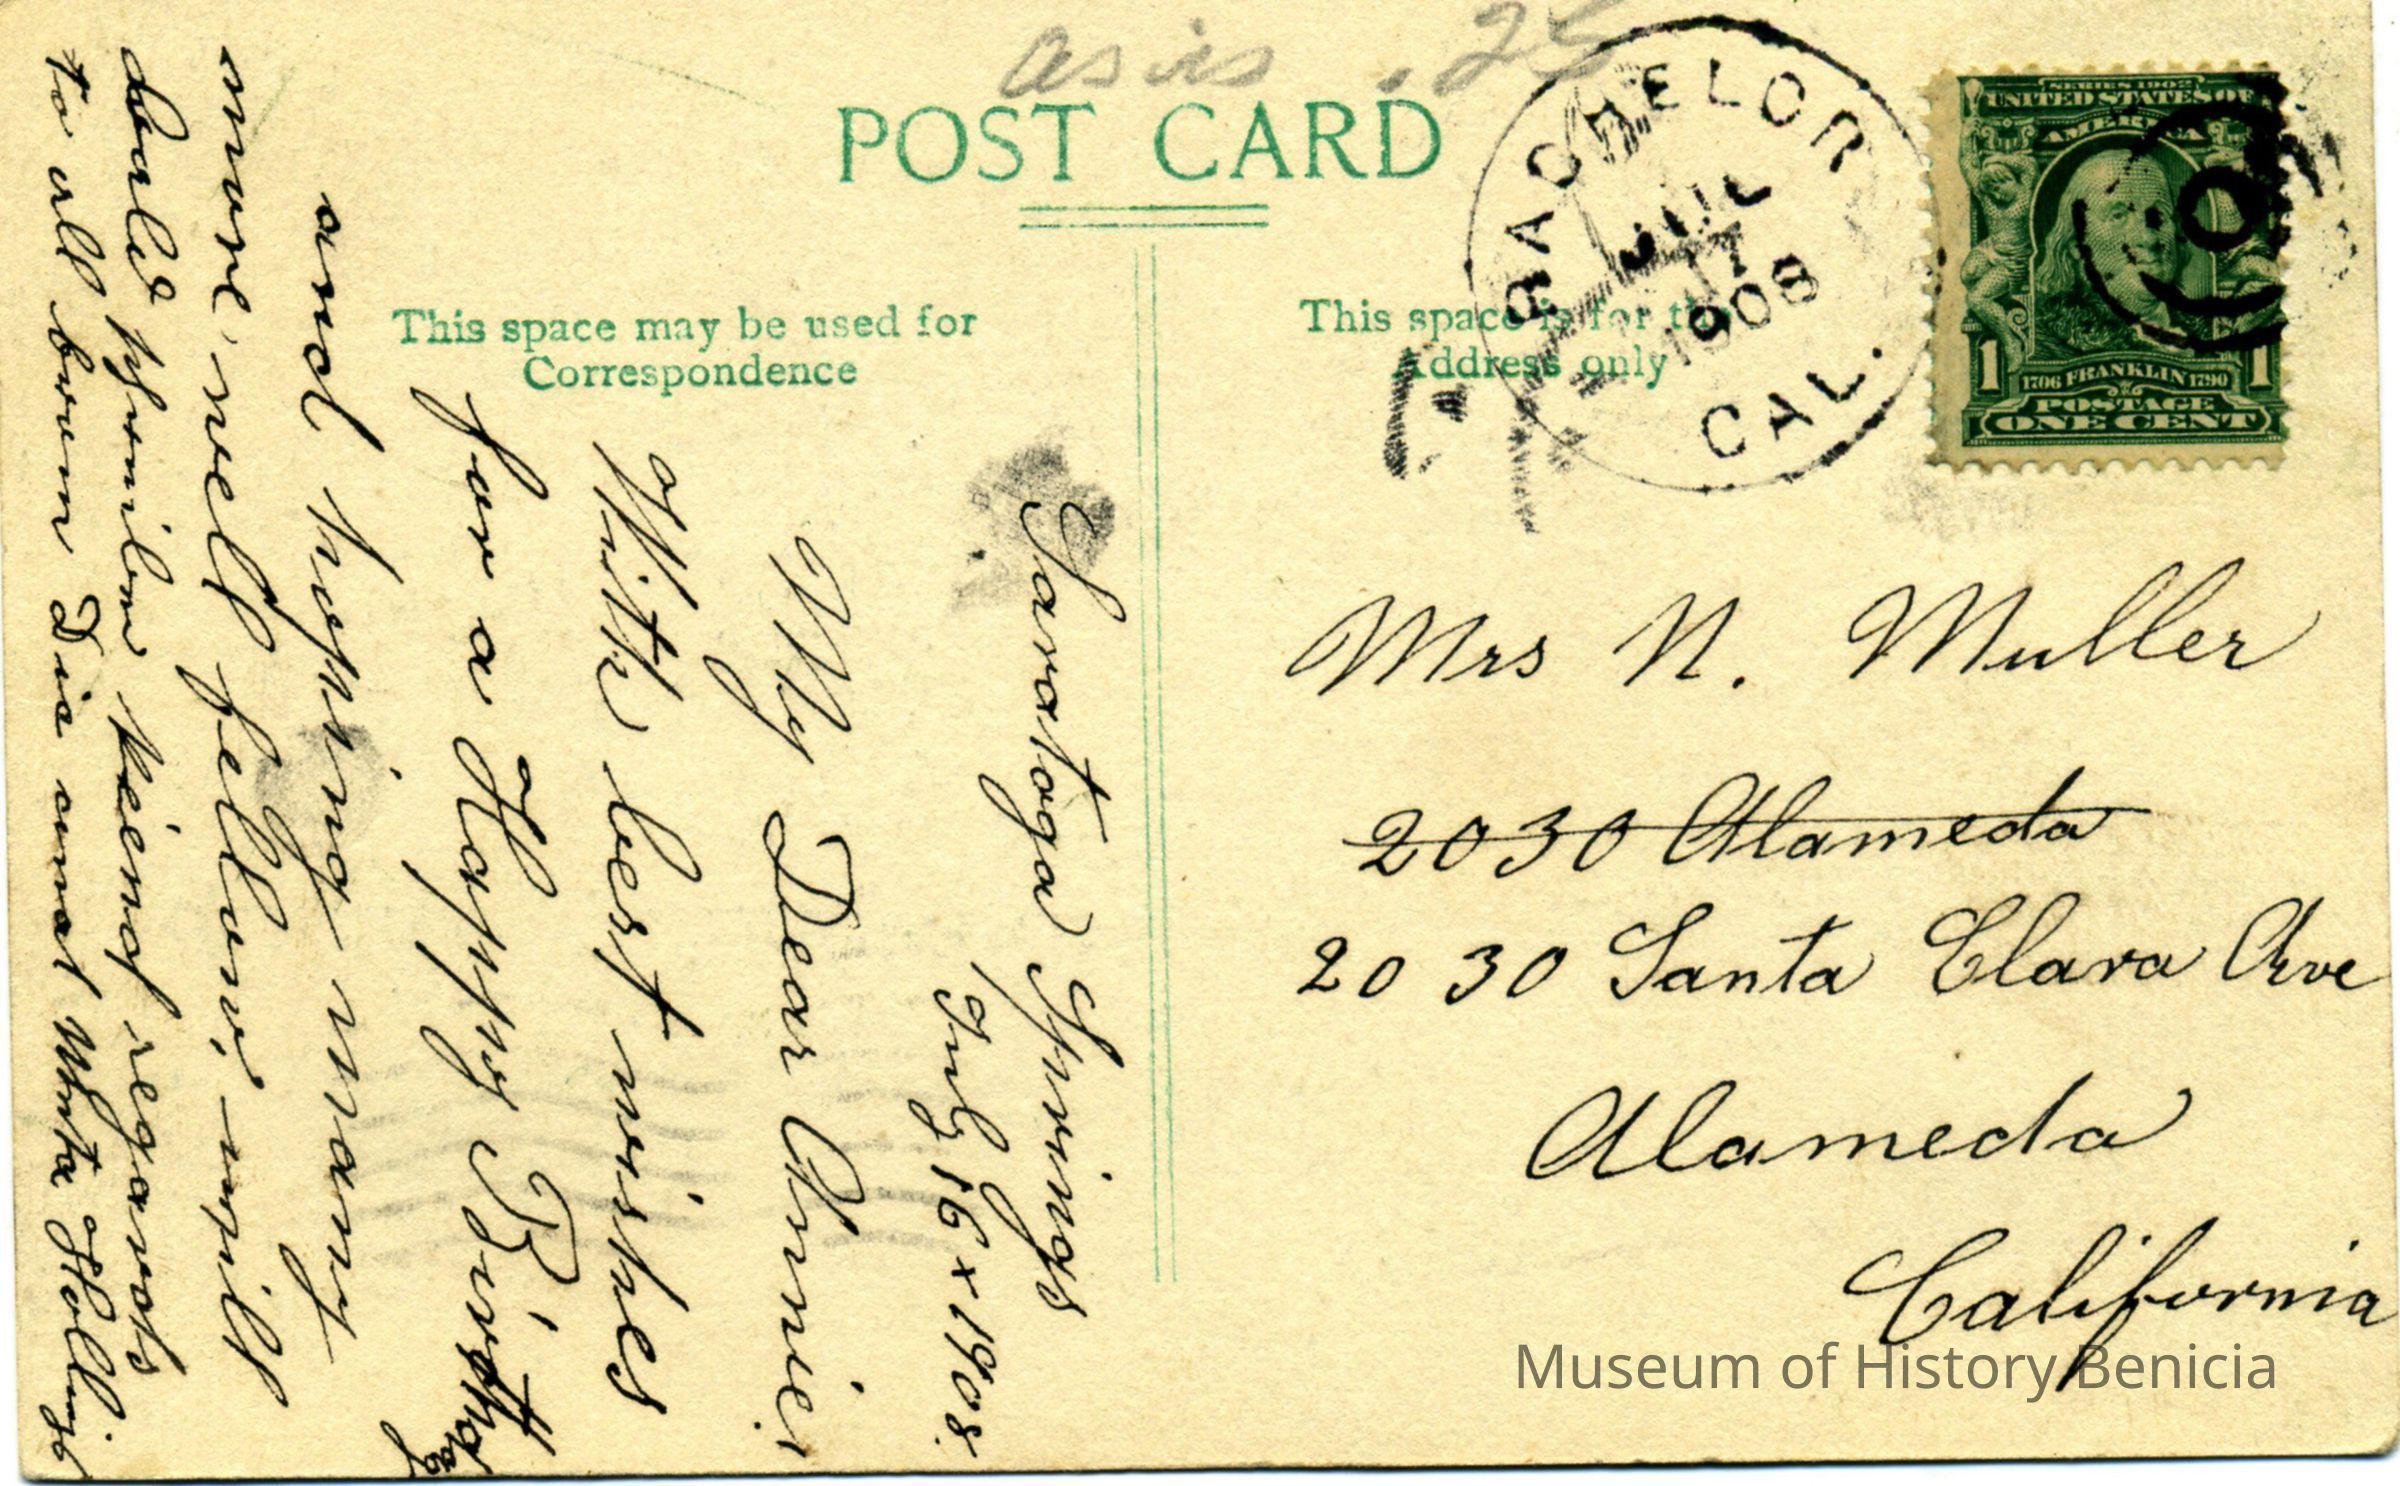 as is .25
POST CARD
This space may be used for
Correspondence
This space is for the
Address only
BACHELOR
JUL
17
1908
CAL.
SERIES 1902
UNITED STATES OF
AMERICA
1 1706 FRANKLIN 1790 1
POSTAGE
ONE CENT
Saratoga Springs
July 16 x 1908.
My Dear Annie.
With best wishes
for a Happy Birthday
and hoping many
more will follow, will
close kind regards
to all from Dia and
Mrs N. Muller
2030 Alameda
2030 Santa Clara Ave
Alameda
California
Museum of History Benicia